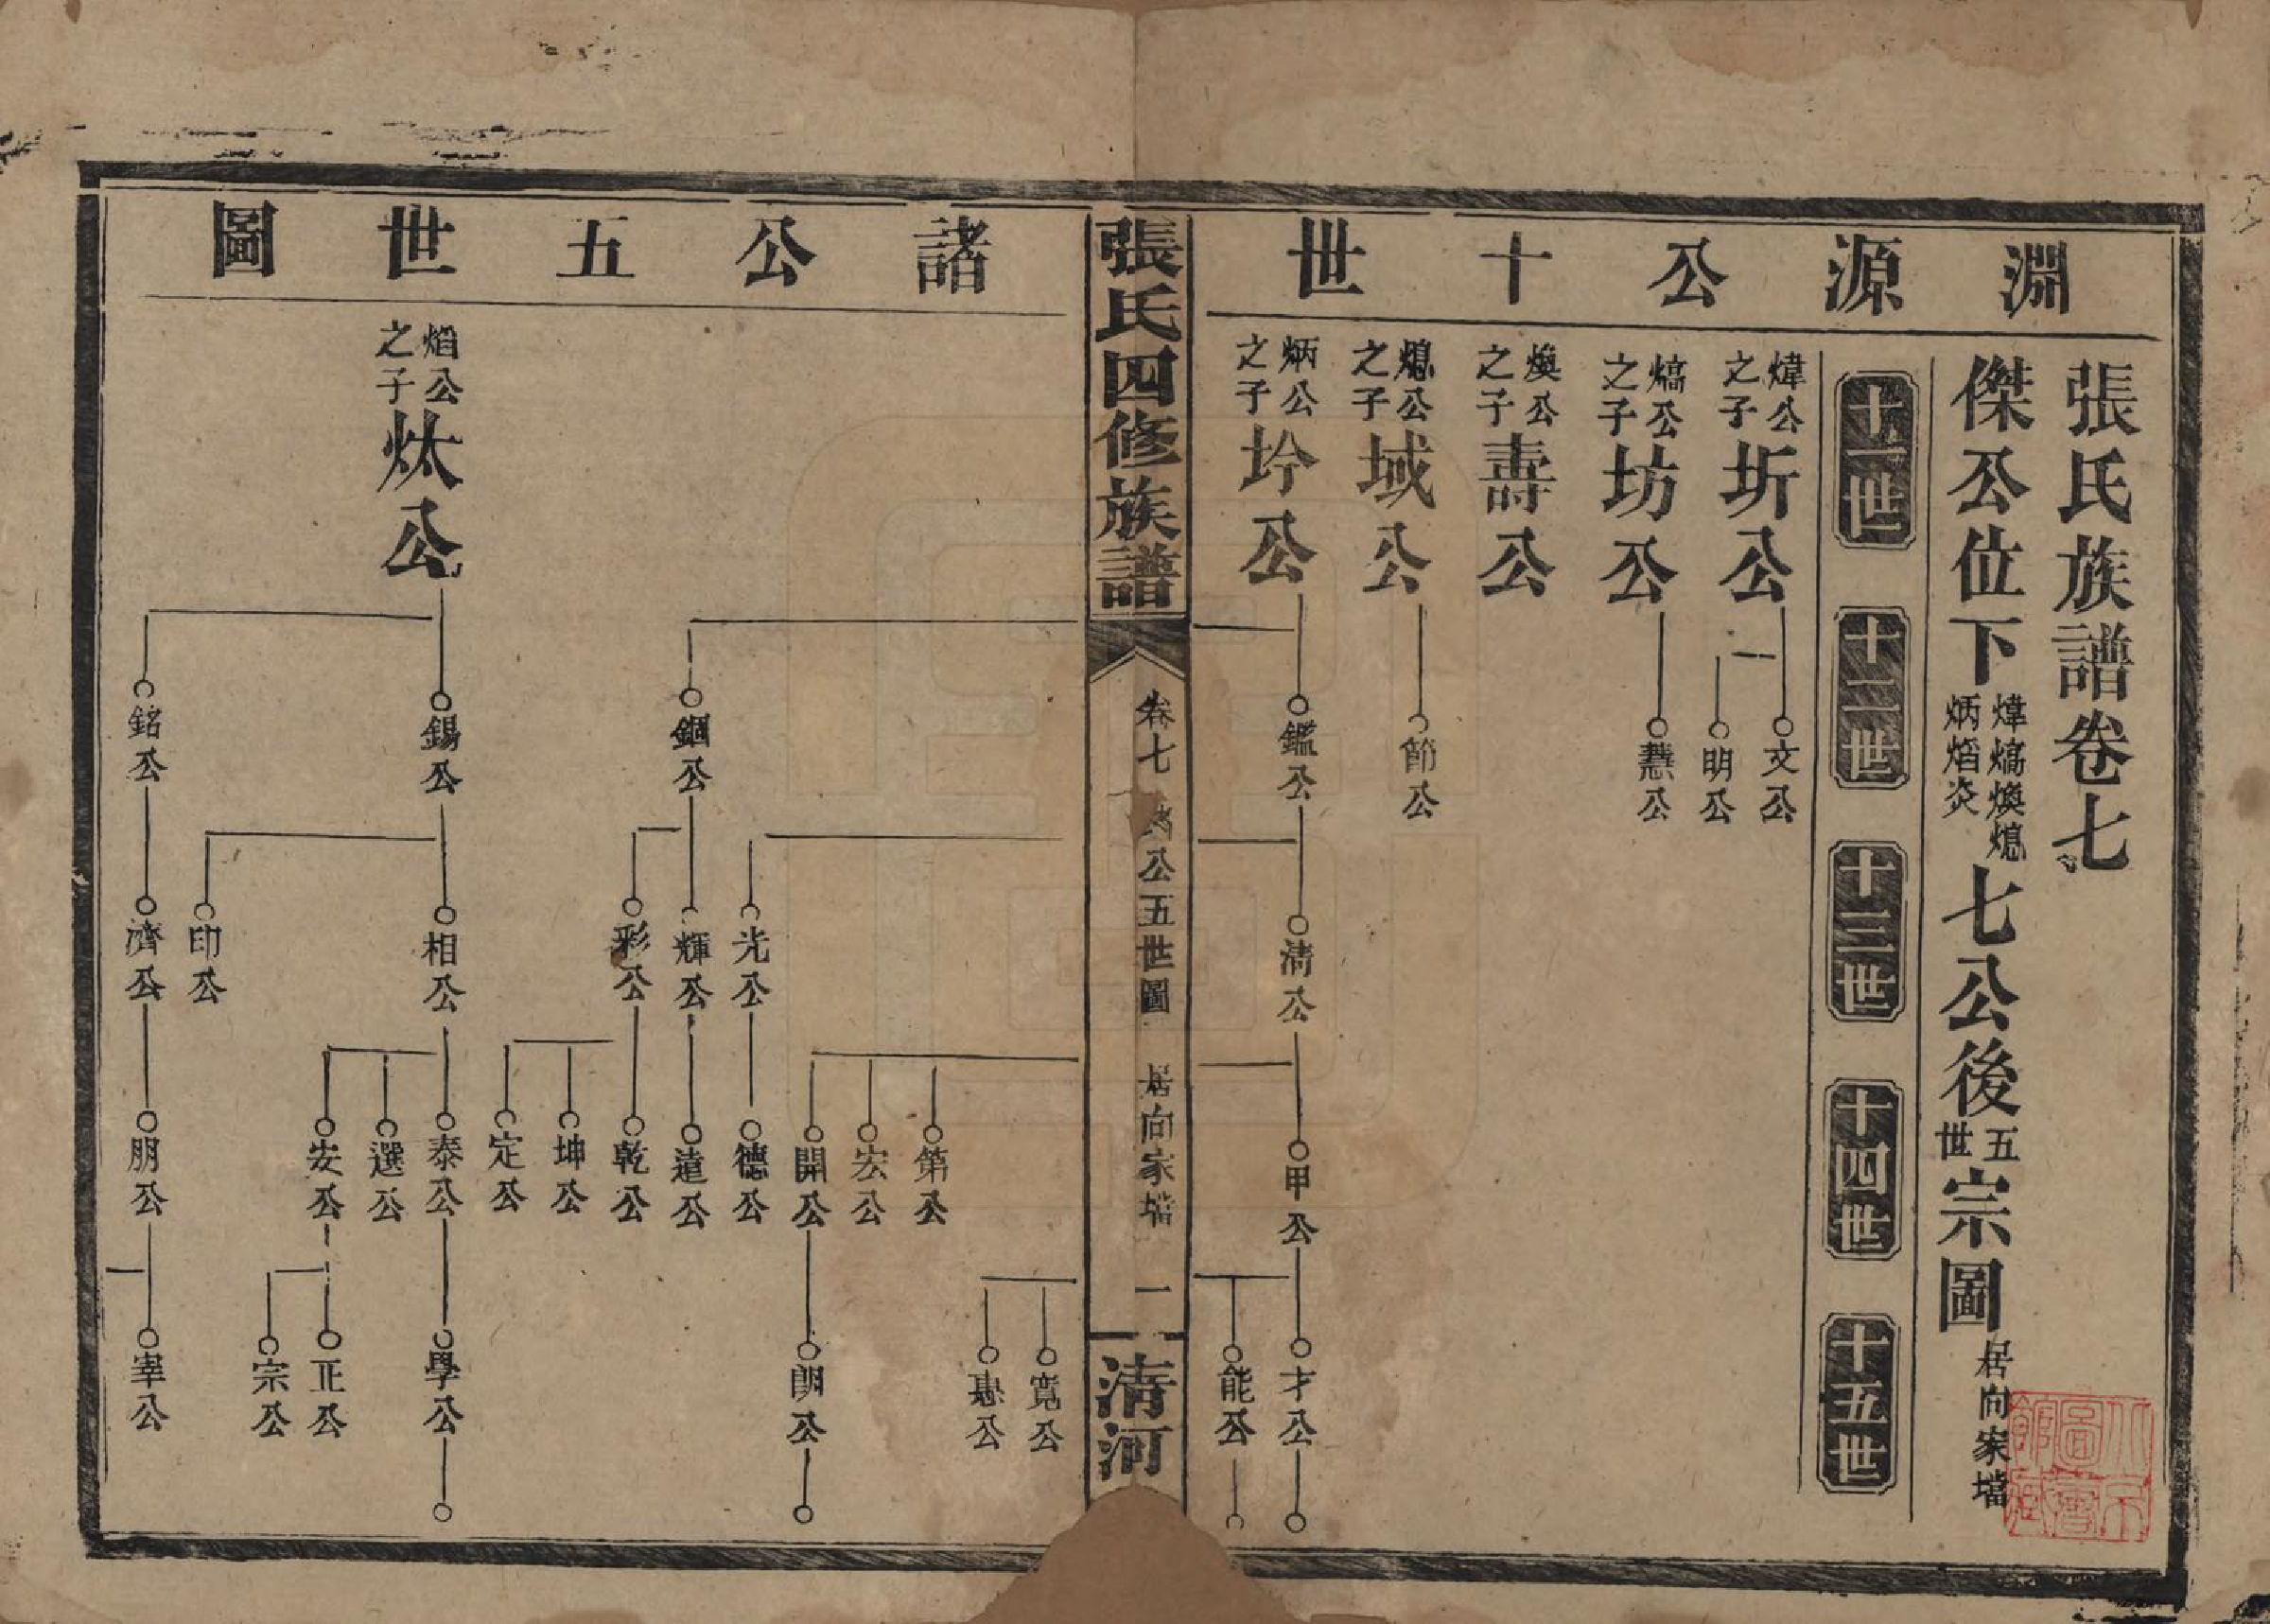 淵源公十世
張氏族譜卷七
傑公位下煒熇煥熄炳焰炎七公後五世宗圖居向家壋
十一世
十二世
十三世
十四世
十五世
煒公之子圻公
文公
明公
熇公之子坊公
慧公
煥公之子壽公
熄公之子域公
節公
炳公之子坅公
鑑公
清公
甲公
才公
能公
張氏四修族譜
卷七
公五世圖
居向家壋
一
清河
諸公五世圖
寬公
惠公
第公
宏公
開公
朗公
光公
德公
錮公
輝公
遠公
彩公
乾公
坤公
定公
焰公之子炏公
錫公
相公
泰公
學公
選公
安公
正公
宗公
印公
銘公
濟公
朋公
宰公